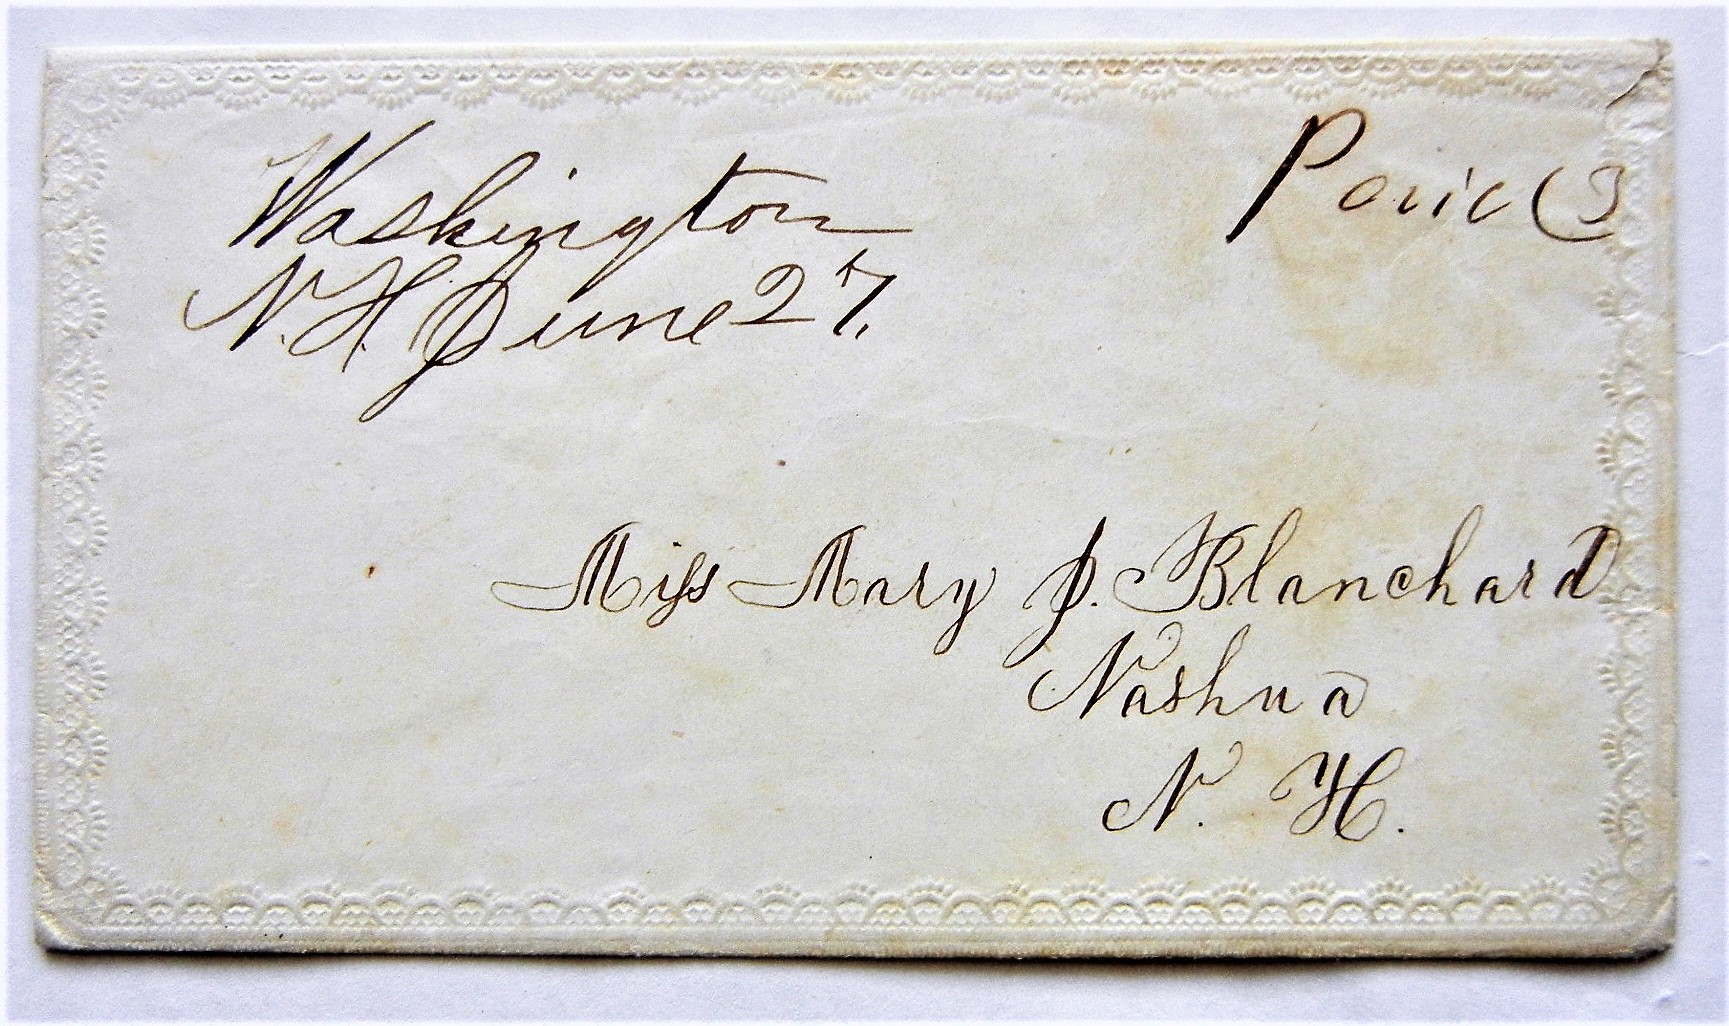 Washington
N.H. June 27.
Paid 3
Miss Mary J. Blanchard
Nashua
N. H.